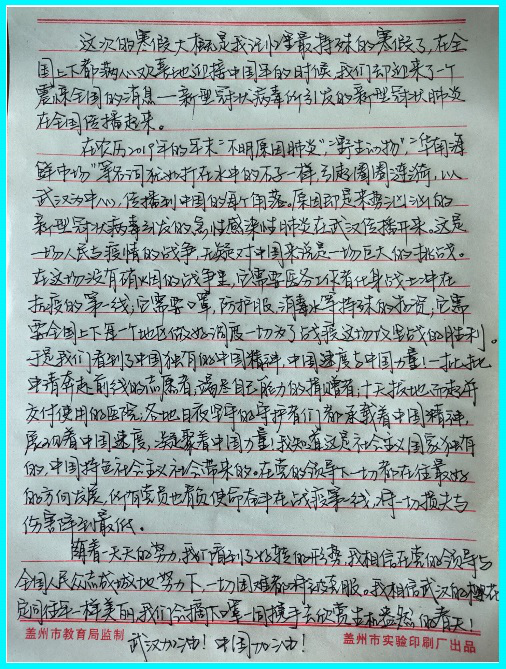 这次的寒假大概是我记忆里最特殊的寒假了,在全
国上下都满心欢喜地迎接中国年的时候,我们却迎来了一个
震惊全国的消息——新型冠状病毒所引发的新型冠状肺炎
在全国传播起来。
在农历2019年的年末"不明原因肺炎","野生动物","华南海
鲜市场"等名词犹如打在水中的石子一样引起圈圈涟漪,以
武汉为中心,传播到中国的每个角落。原因即是来势汹汹的
新型冠状病毒引发的急性感染性肺炎在武汉传播开来。这是
一场人民与疫情的战争,无疑对中国来说是一场巨大的挑战。
在这场没有硝烟的战争里,它需要医务工作者化身战士冲在
抗疫的第一线;它需要口罩,防护服,消毒水等特殊的物资,它需
要全国上下每一个地区做好调度一切为了战疫这场攻坚战的胜利。
于是我们看到了中国独有的中国精神,中国速度与中国力量!一批批
申请奔赴前线的志愿者,竭尽自己能力的捐赠者,十天拔地而起并
交付使用的医院,各地日夜坚守的守护者们都承载着中国精神,
展现着中国速度,凝聚着中国力量!我知道这是社会主义国家独有
的,中国特色社会主义社会带来的。在党的领导下一切都在往最好
的方向发展,所有党员也肩负使命奋斗在战疫第一线,将一切损失与
伤害降到最低。
随着一天天的努力,我们看到了好转的形势,我相信在党的领导与
全国人民众志成城地努力下一切困难都将被克服。我相信武汉的樱花
定同往年一样美丽,我们会摘下口罩一同携手去欣赏生机盎然的春天!
武汉加油!中国加油!
盖州市教育局监制 盖州市实验印刷厂出品